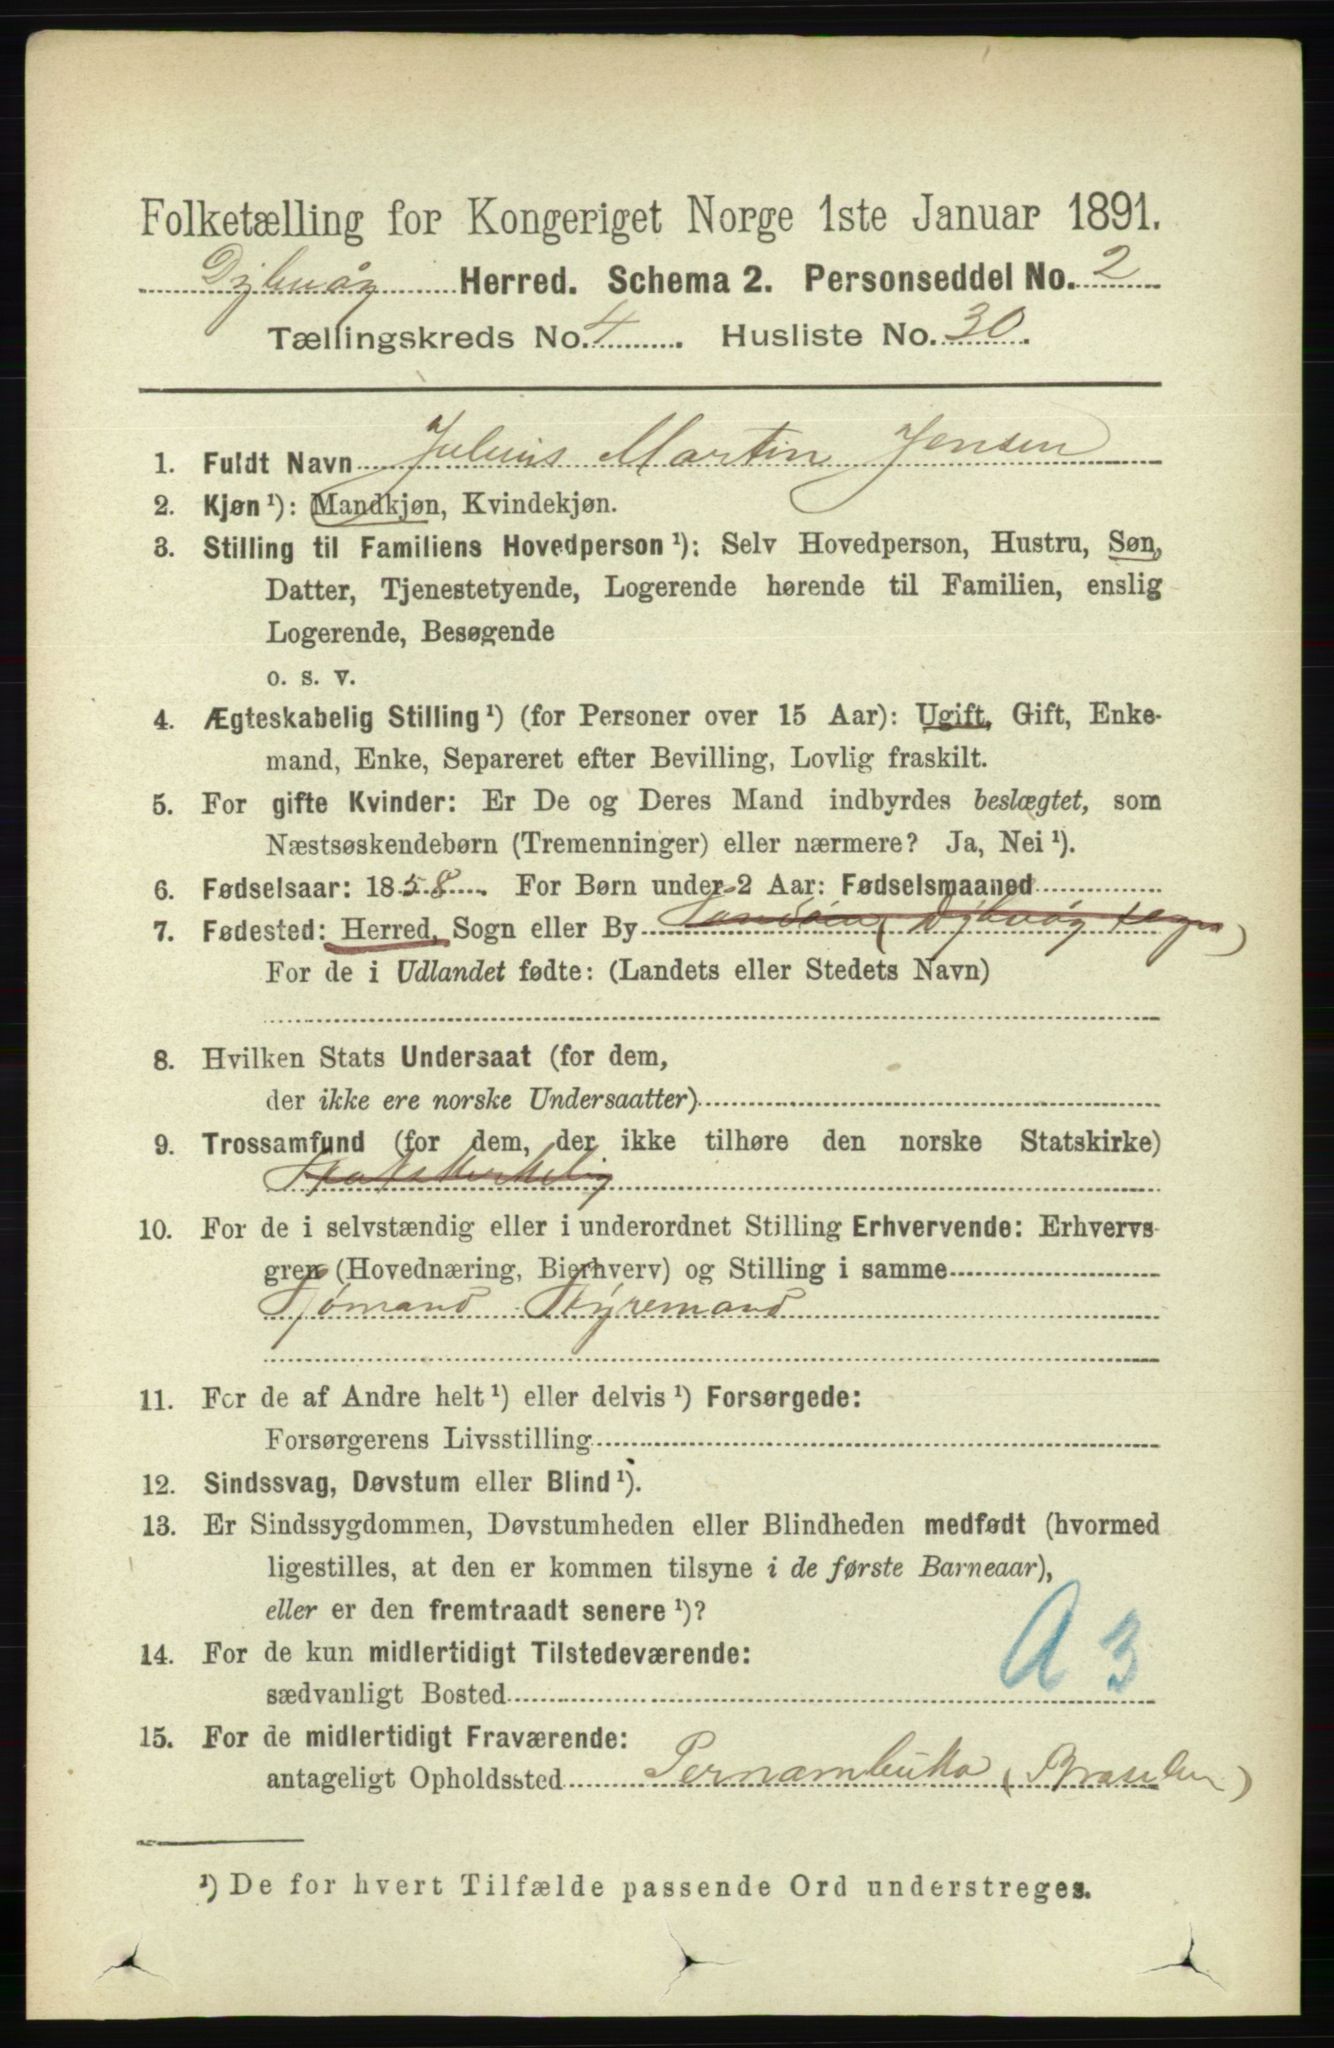 Folketælling for Kongeriget Norge 1ste Januar 1891.
Dybvåg Herred. Schema 2. Personseddel No. 2
Tællingskreds No. 4. Husliste No. 30.
1. Fuldt Navn Julius Martin Jensen
2. Kjøn ¹): Mandkjøn, Kvindekjøn.
3. Stilling til Familiens Hovedperson ¹): Selv Hovedperson, Hustru, Søn,
Datter, Tjenestetyende, Logerende hørende til Familien, enslig
Logerende, Besøgende
o. s. v.
4. Ægteskabelig Stilling ¹) (for Personer over 15 Aar): Ugift, Gift, Enke-
mand, Enke, Separeret efter Bevilling, Lovlig fraskilt.
5. For gifte Kvinder: Er De og Deres Mand indbyrdes beslægtet, som
Næstsøskendebørn (Tremenninger) eller nærmere? Ja, Nei ¹).
6. Fødselsaar: 1858. For Børn under 2 Aar: Fødselsmaaned
7. Fødested: Herred, Sogn eller By Sandøen (Dybvåg sogn)
For de i Udlandet fødte: (Landets eller Stedets Navn)
8. Hvilken Stats Undersaat (for dem,
der ikke ere norske Undersaatter)
9. Trossamfund (for dem, der ikke tilhøre den norske Statskirke)
Statskirkelig
10. For de i selvstændig eller i underordnet Stilling Erhvervende: Erhvervs-
gren (Hovednæring, Bierhverv) og Stilling i samme
Sjømand Styremand
11. For de af Andre helt ¹) eller delvis ¹) Forsørgede:
Forsørgerens Livsstilling
12. Sindssvag, Døvstum eller Blind ¹).
13. Er Sindssygdommen, Døvstumheden eller Blindheden medfødt (hvormed
ligestilles, at den er kommen tilsyne i de første Barneaar),
eller er den fremtraadt senere ¹)?
14. For de kun midlertidigt Tilstedeværende:
sædvanligt Bosted
A 3
15. For de midlertidigt Fraværende:
antageligt Opholdssted Pernambuko (Brasilien)
¹) De for hvert Tilfælde passende Ord understreges.